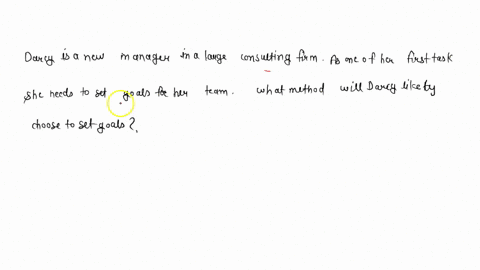 Darcy is a new manager in a large consulting firm. As one of her first task
she needs to set goals for her team. what method will Darcy like by
choose to set goals?